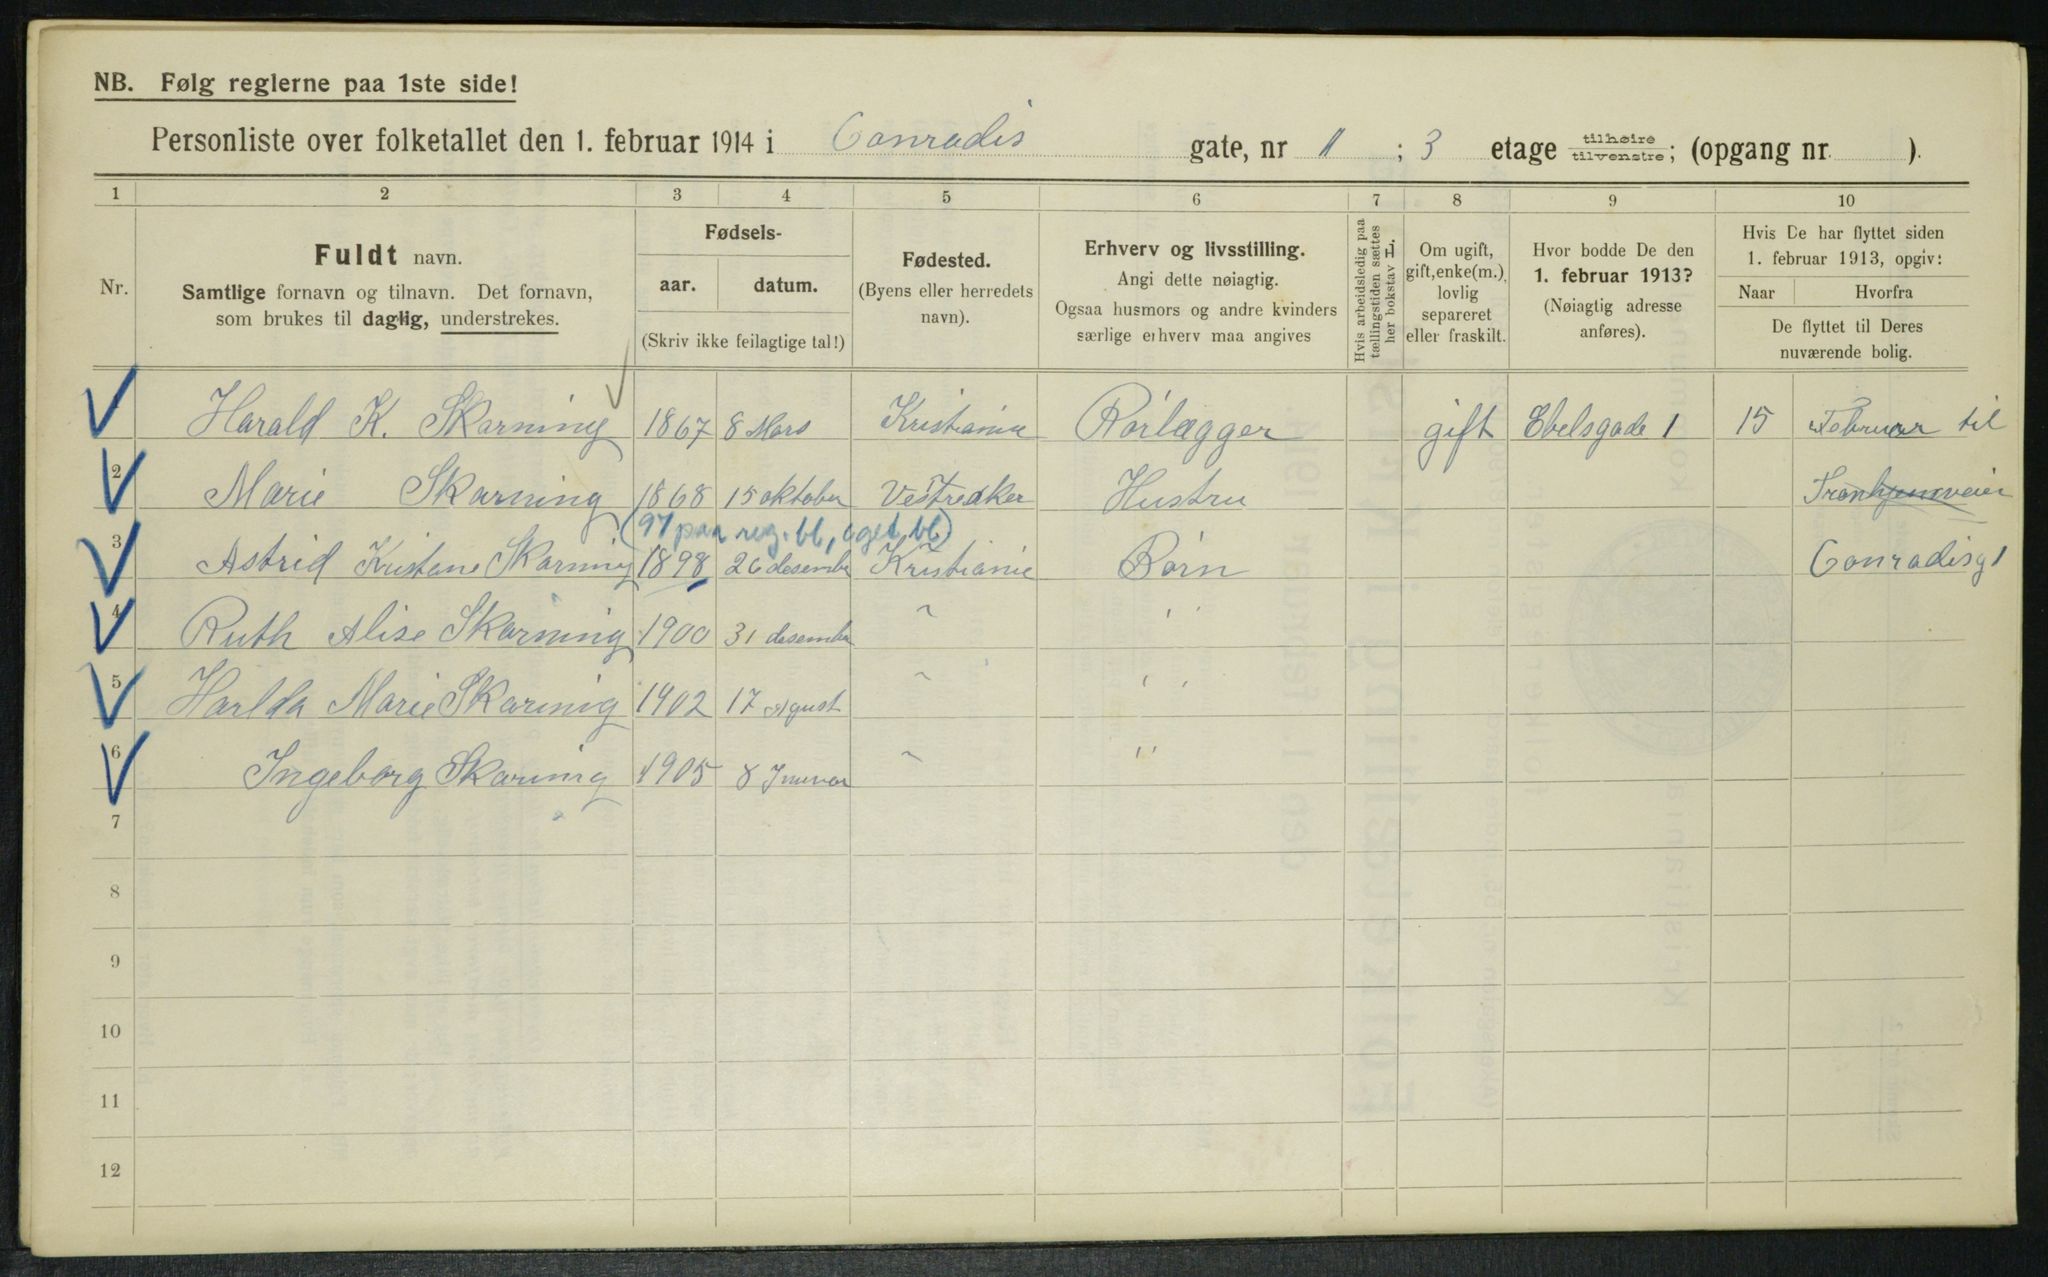 NB. Følg reglerne paa 1ste side!
Personliste over folketallet den 1. februar 1914 i Conradis gate, nr 11 ; 3 etage tilhøire tilvenstre; (opgang nr. ).
1 2 3 4 5 6 7 8 9 10
Nr.
Fuldt navn.
Samtlige fornavn og tilnavn. Det fornavn,
som brukes til daglig, understrekes.
Fødsels-
aar. datum.
(Skriv ikke feilagtige tal!)
Fødested.
(Byens eller herredets
navn).
Erhverv og livsstilling.
Angi dette nøiagtig.
Ogsaa husmors og andre kvinders
særlige erhverv maa angives
Hvis arbeidsledig paa
tællingstiden sættes
her bokstav L.
Om ugift,
gift, enke(m.),
lovlig
separeret
eller fraskilt.
Hvor bodde De den
1. februar 1913?
(Nøiagtig adresse
anføres).
Hvis De har flyttet siden
1. februar 1913, opgiv:
Naar Hvorfra
De flyttet til Deres
nuværende bolig.
Harald K. Skarning 1867 8 Mars Kristiania Rørlægger gift Ebelsgade 1 15 Februar til
2 Marie Skarning 1868 15 oktober Vestreaker Hustru Tronhjemveier
(97 paa reg. bl, og et bl)
3 Astrid Kristane Skarning 1898 26 desember Kristiania Børn Conradisg 1
4 Ruth Alise Skarning 1900 31 desember " " "
5 Harlda Marie Skarnig 1902 17 Agust " " "
6 Ingeborg Skarnig 1905 8 Januar " "
7
8
9
10
11
12